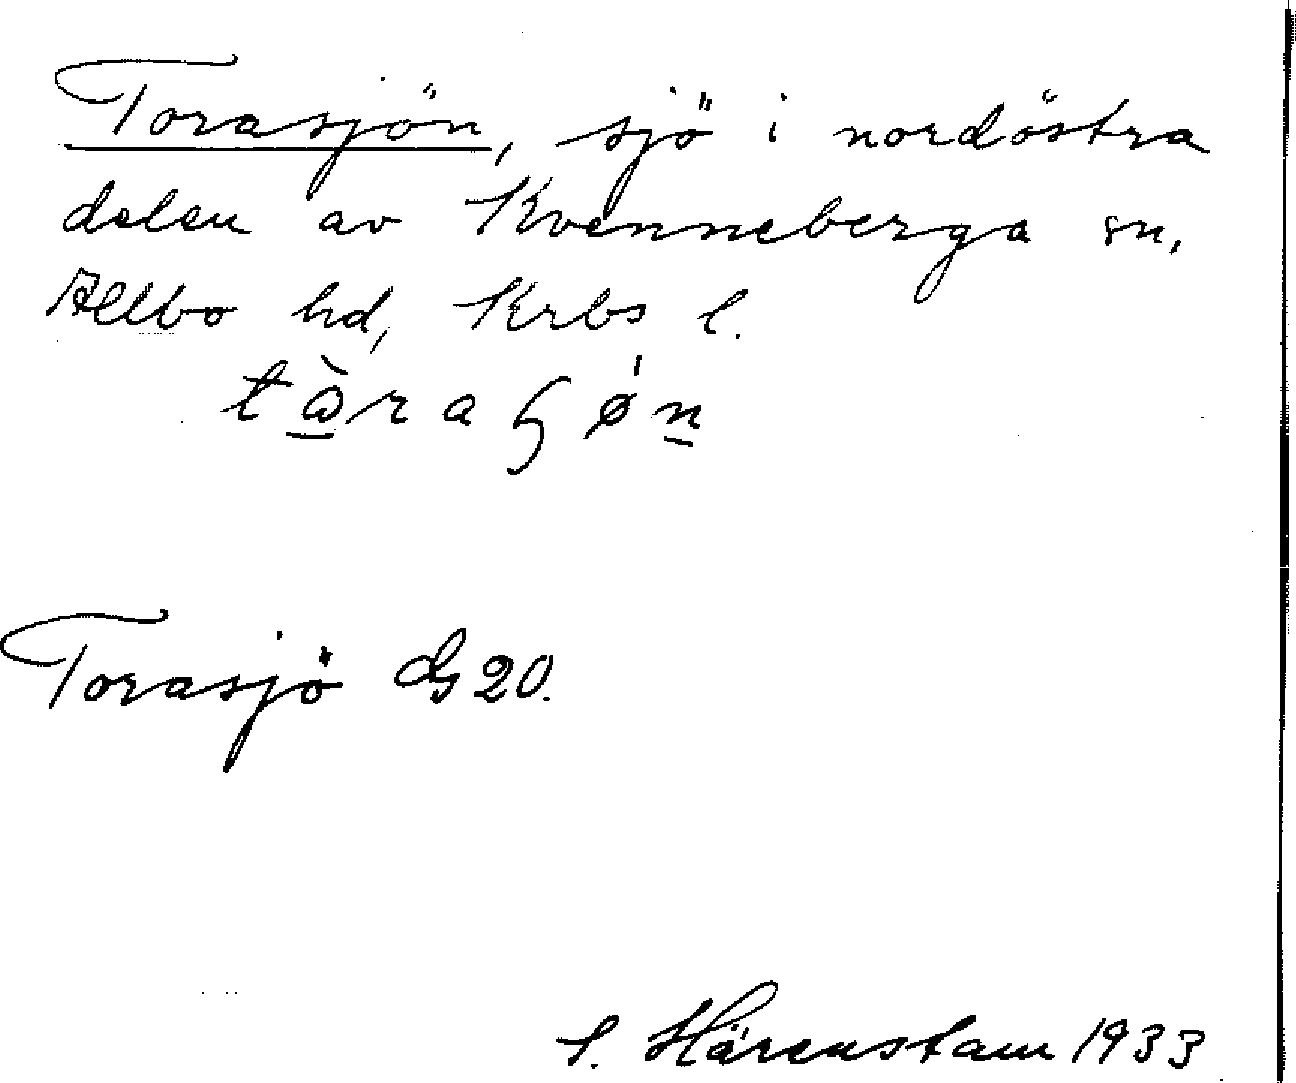 Torasjön, sjö i nordöstra
delen av Kvenneberga sn,
Allbo hd, Krbs l.
Torasjö G 20.
Härenstam 1933